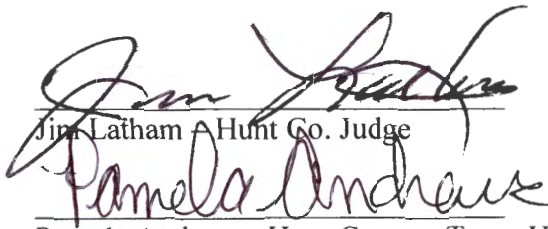 Jim Latham
Jim Latham – Hunt Co. Judge
Pamela Andrews